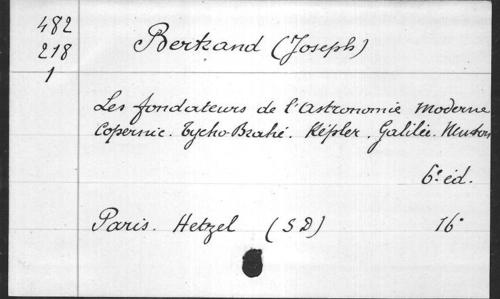 482
218
1
Bertrand (Joseph)
Les fondateurs de l'astronomie moderne
Copernic. Tycho-Brahé. Képler. Galilée. Newton
6e éd.
Paris. Hetzel (S D) 16°